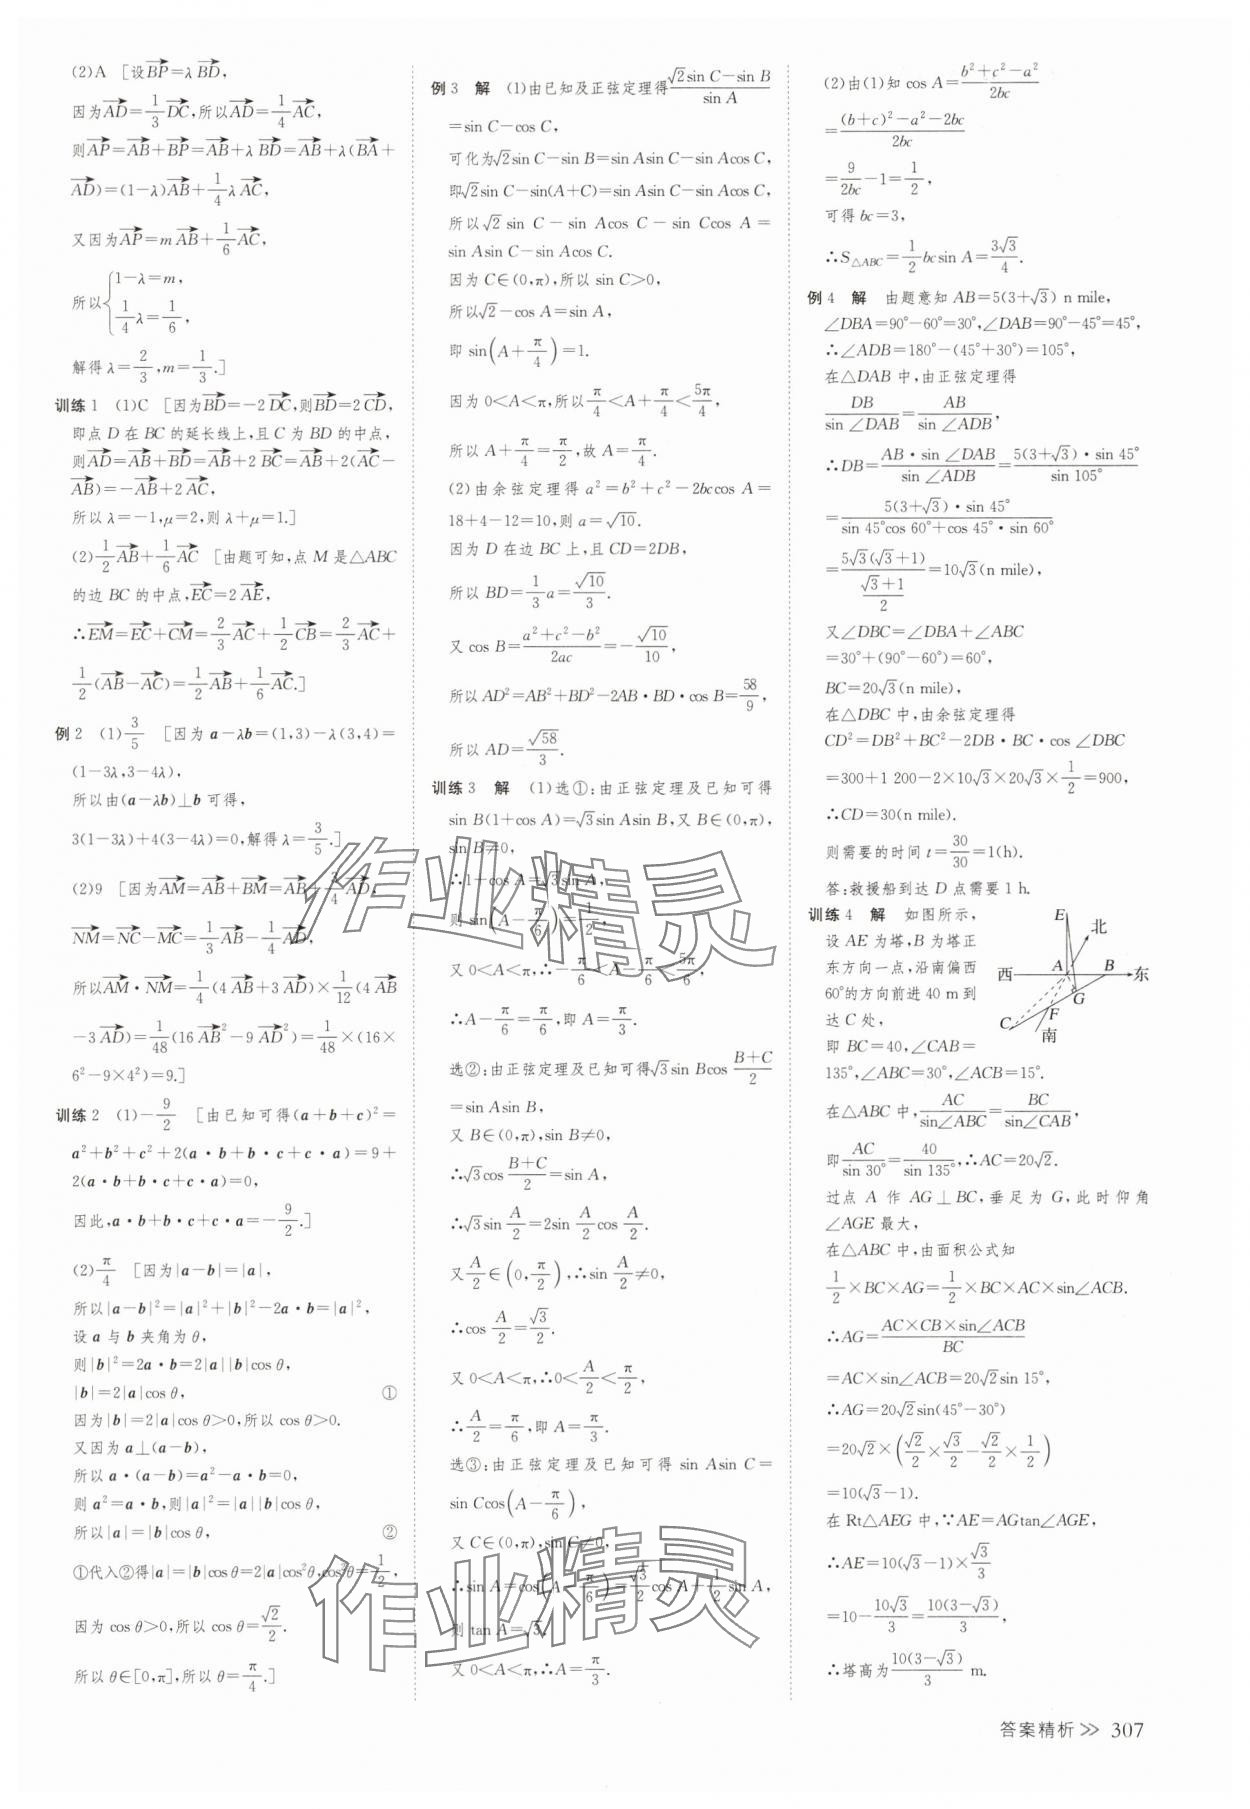 (2)A [设BP=λBD,
因为AD=1/3 DC,所以AD=1/4 AC,
则AP=AB+BP=AB+λBD=AB+λ(BA+
AD)=(1-λ)AB+1/4 λAC,
又因为AP=mAB+1/6 AC,
所以{1-λ=m, 1/4 λ=1/6,
解得λ=2/3,m=1/3.]
训练1 (1)C [因为BD=-2DC,则BD=2CD,
即点D在BC的延长线上,且C为BD的中点,
则AD=AB+BD=AB+2BC=AB+2(AC-
AB)=-AB+2AC,
所以λ=-1,μ=2,则λ+μ=1.]
(2)1/2 AB+1/6 AC [由题可知,点M是△ABC
的边BC的中点,EC=2AE,
∴EM=EC+CM=2/3 AC+1/2 CB=2/3 AC+
1/2(AB-AC)=1/2 AB+1/6 AC.]
例2 (1)3/5 [因为a-λb=(1,3)-λ(3,4)=
(1-3λ,3-4λ),
所以由(a-λb)⊥b可得,
3(1-3λ)+4(3-4λ)=0,解得λ=3/5.]
(2)9 [因为AM=AB+BM=AB+3/4 AD,
NM=NC-MC=1/3 AB-1/4 AD,
所以AM·NM=1/4(4AB+3AD)×1/12(4AB
-3AD)=1/48(16AB²-9AD²)=1/48×(16×
6²-9×4²)=9.]
训练2 (1)-9/2 [由已知可得(a+b+c)²=
a²+b²+c²+2(a·b+b·c+c·a)=9+
2(a·b+b·c+c·a)=0,
因此,a·b+b·c+c·a=-9/2.]
(2)π/4 [因为|a-b|=|a|,
所以|a-b|²=|a|²+|b|²-2a·b=|a|²,
设a与b夹角为θ,
则|b|²=2a·b=2|a||b|cos θ,
|b|=2|a|cos θ, ①
因为|b|=2|a|cos θ>0,所以cos θ>0.
又因为a⊥(a-b),
所以a·(a-b)=a²-a·b=0,
则a²=a·b,则|a|²=|a||b|cos θ,
所以|a|=|b|cos θ, ②
①代入②得|a|=|b|cos θ=2|a|cos²θ,cos²θ=1/2,
因为cos θ>0,所以cos θ=√2/2.
所以θ∈[0,π],所以θ=π/4.]
例3 解 (1)由已知及正弦定理得(√2sin C-sin B)/sin A
=sin C-cos C,
可化为√2sin C-sin B=sin Asin C-sin Acos C,
即√2sin C-sin(A+C)=sin Asin C-sin Acos C,
所以√2 sin C-sin Acos C-sin Ccos A=
sin Asin C-sin Acos C.
因为C∈(0,π),所以sin C>0,
所以√2-cos A=sin A,
即sin(A+π/4)=1.
因为0<A<π,所以π/4<A+π/4<5π/4,
所以A+π/4=π/2,故A=π/4.
(2)由余弦定理得a²=b²+c²-2bccos A=
18+4-12=10,则a=√10.
因为D在边BC上,且CD=2DB,
所以BD=1/3 a=√10/3.
又cos B=(a²+c²-b²)/2ac=-√10/10,
所以AD²=AB²+BD²-2AB·BD·cos B=58/9,
所以AD=√58/3.
训练3 解 (1)选①:由正弦定理及已知可得
sin B(1+cos A)=√3sin Asin B,又B∈(0,π),
sin B≠0,
∴1+cos A=√3sin A,
则sin(A-π/6)=1/2,
又0<A<π,∴-π/6<A-π/6<5π/6,
∴A-π/6=π/6,即A=π/3.
选②:由正弦定理及已知可得√3sin Bcos (B+C)/2
=sin Asin B,
又B∈(0,π),sin B≠0,
∴√3cos (B+C)/2=sin A,
∴√3sin A/2=2sin A/2 cos A/2.
又A/2∈(0,π/2),∴sin A/2≠0,
∴cos A/2=√3/2.
又0<A<π,∴0<A/2<π/2,
∴A/2=π/6,即A=π/3.
选③:由正弦定理及已知可得sin Asin C=
sin Ccos(A-π/6),
又C∈(0,π),sin C≠0,
∴sin A=cos(A-π/6)=√3/2 cos A+1/2 sin A,
则tan A=√3.
又0<A<π,∴A=π/3.
(2)由(1)知cos A=(b²+c²-a²)/2bc
=((b+c)²-a²-2bc)/2bc
=9/2bc-1=1/2,
可得bc=3,
∴S△ABC=1/2 bcsin A=3√3/4.
例4 解 由题意知AB=5(3+√3) n mile,
∠DBA=90°-60°=30°,∠DAB=90°-45°=45°,
∴∠ADB=180°-(45°+30°)=105°,
在△DAB中,由正弦定理得
DB/sin∠DAB=AB/sin∠ADB,
∴DB=AB·sin∠DAB/sin∠ADB=5(3+√3)·sin 45°/sin 105°
=5(3+√3)·sin 45°/(sin 45°cos 60°+cos 45°·sin 60°)
=5√3(√3+1)/((√3+1)/2)=10√3(n mile),
又∠DBC=∠DBA+∠ABC
=30°+(90°-60°)=60°,
BC=20√3(n mile),
在△DBC中,由余弦定理得
CD²=DB²+BC²-2DB·BC·cos∠DBC
=300+1 200-2×10√3×20√3×1/2=900,
∴CD=30(n mile).
则需要的时间t=30/30=1(h).
答:救援船到达D点需要1 h.
训练4 解 如图所示,
设AE为塔,B为塔正
东方向一点,沿南偏西
60°的方向前进40 m到
达C处,
E
北
西 A B 东
G
F
C
南
即BC=40,∠CAB=
135°,∠ABC=30°,∠ACB=15°.
在△ABC中,AC/sin∠ABC=BC/sin∠CAB,
即AC/sin 30°=40/sin 135°,∴AC=20√2.
过点A作AG⊥BC,垂足为G,此时仰角
∠AGE最大,
在△ABC中,由面积公式知
1/2×BC×AG=1/2×BC×AC×sin∠ACB.
∴AG=AC×CB×sin∠ACB/BC
=AC×sin∠ACB=20√2sin 15°,
∴AG=20√2sin(45°-30°)
=20√2×(√2/2×√3/2-√2/2×1/2)
=10(√3-1).
在Rt△AEG中,∵AE=AGtan∠AGE,
∴AE=10(√3-1)×√3/3
=10-10√3/3=10(3-√3)/3,
∴塔高为10(3-√3)/3 m.
作业精灵
作业精灵
答案精析 >> 307